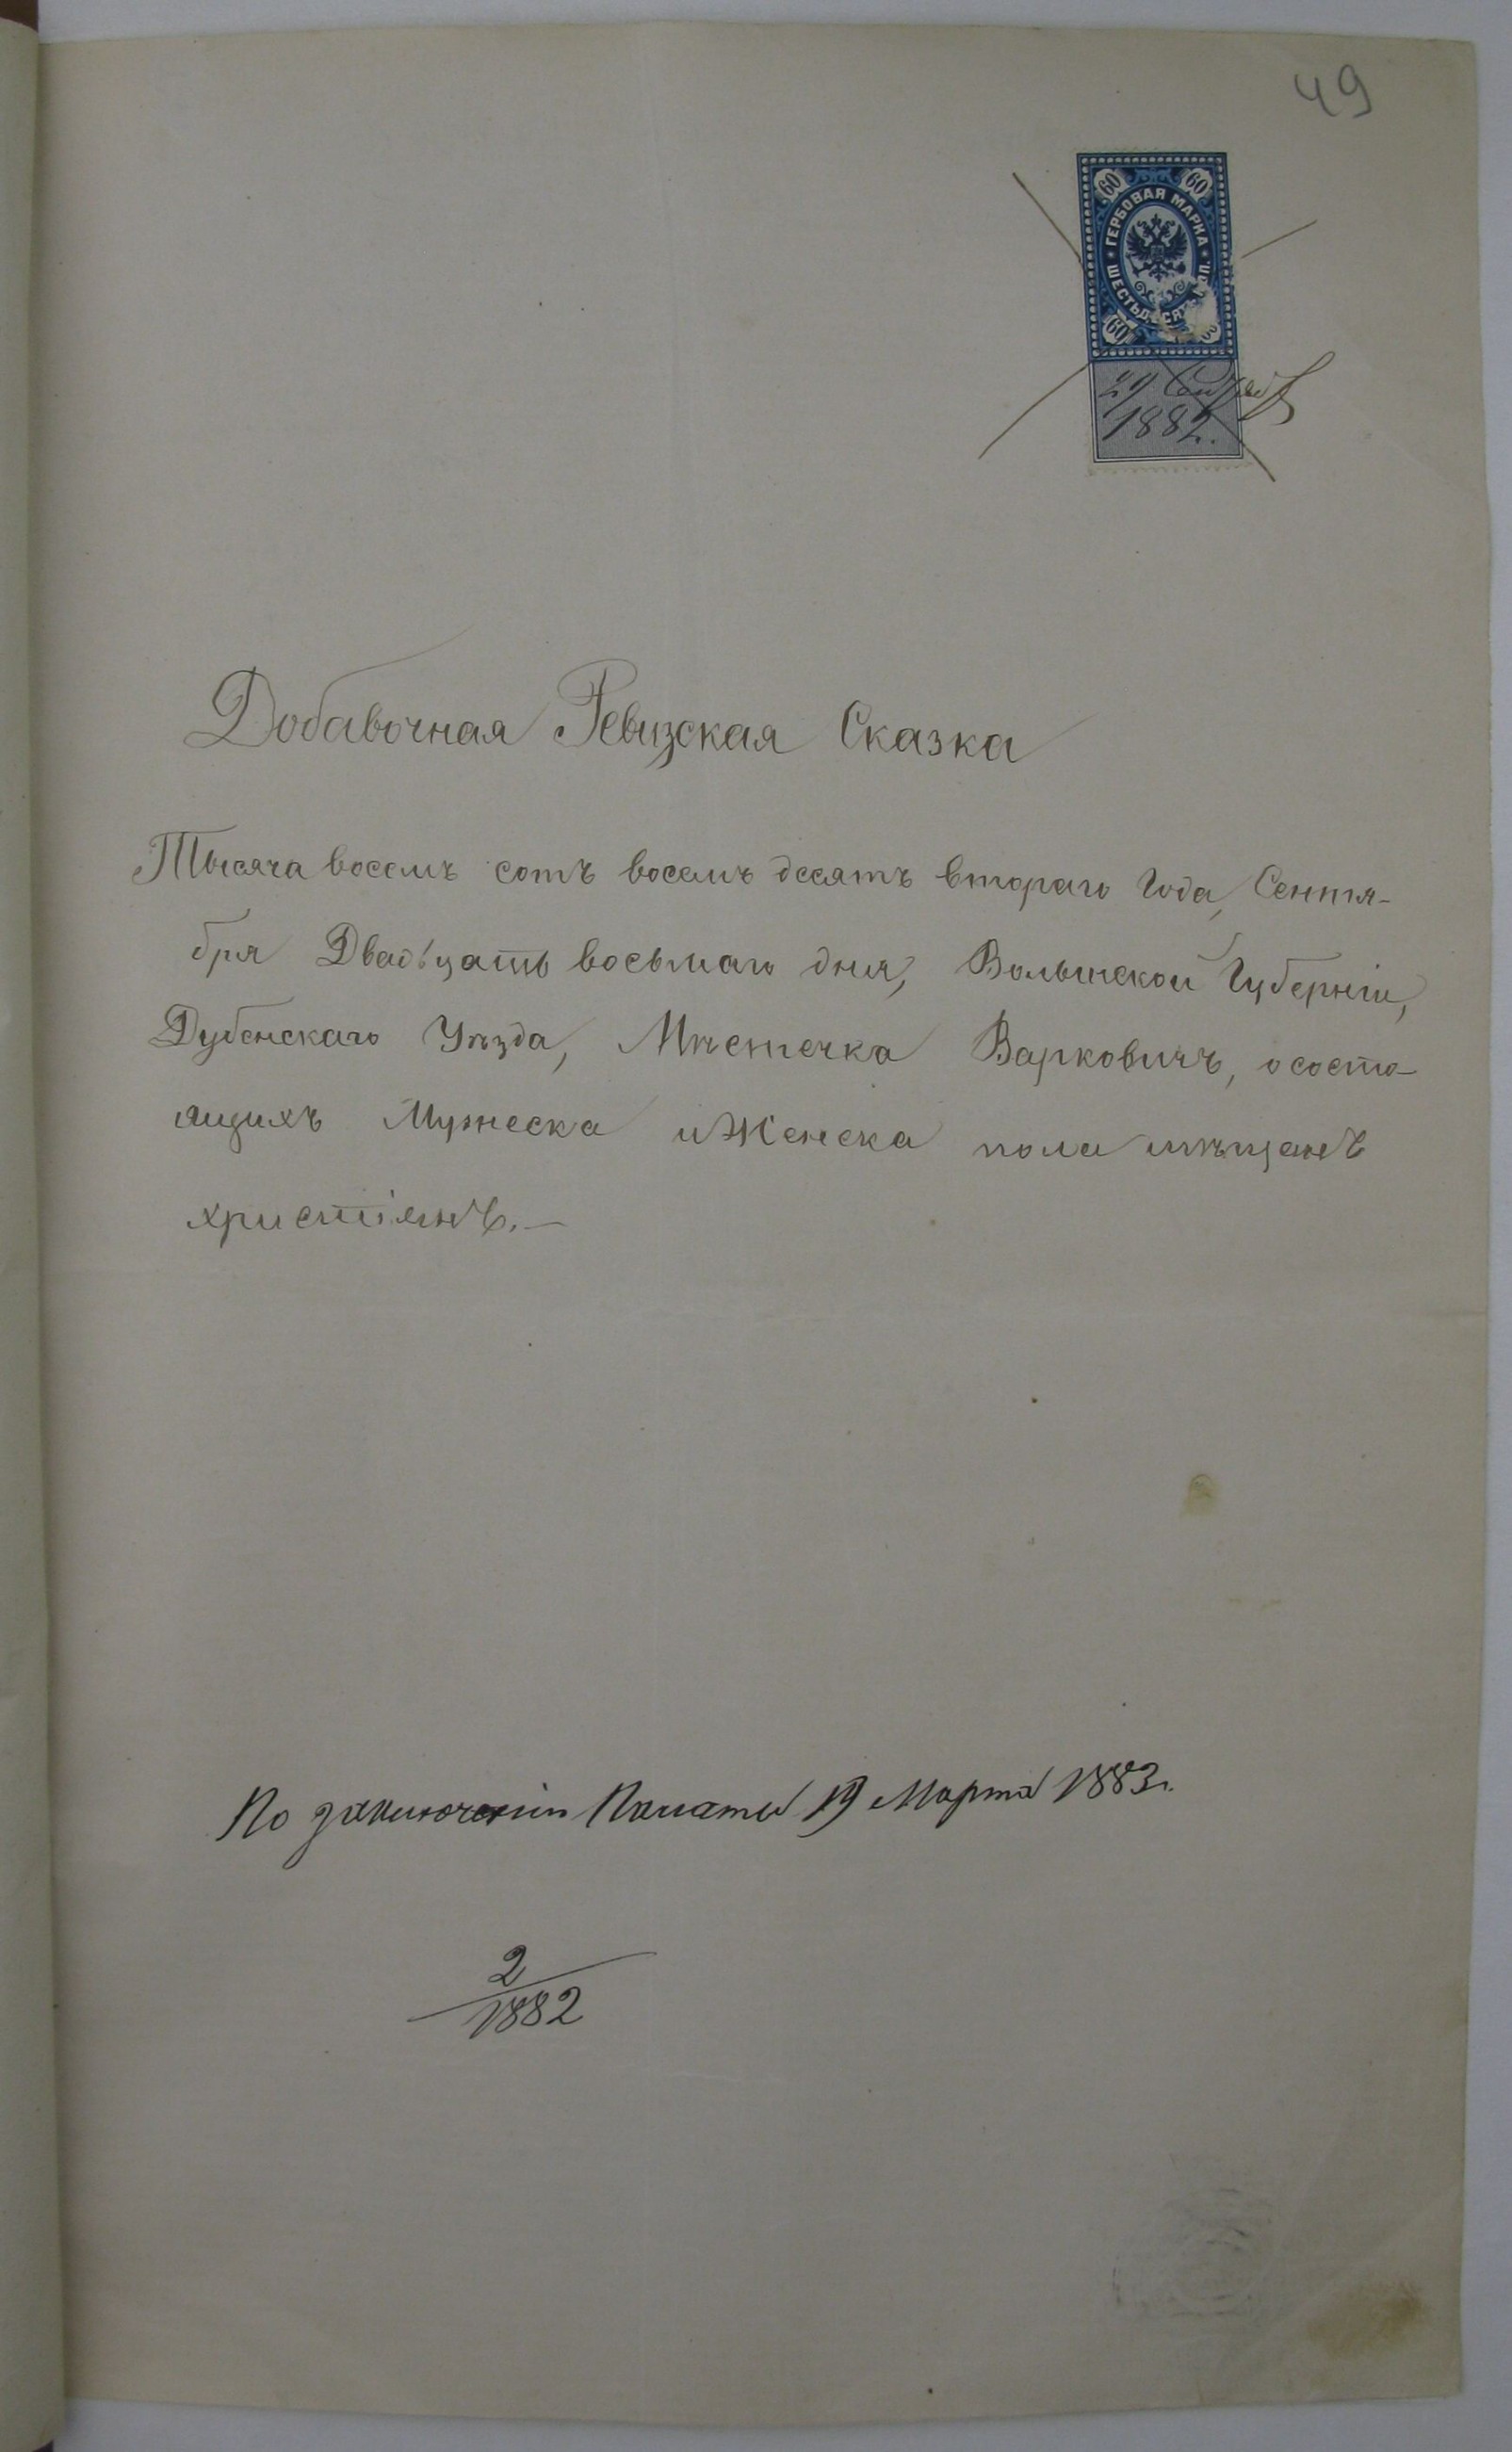 49
60 60
ГЕРБОВАЯ МАРКА
ШЕСТЬДЕСЯ
60
29 Сентяб
1882.
Добавочная Ревизская Сказка
Тысяча восемъ сотъ восемъ десятъ втораго Года, Сентя-
бря Двадцать восьмаго дня, Волынской Губерніи,
Дубенскаго Уѣзда, Мѣстечка Варковичъ, о состо-
ящихъ Мужеска и Женска пола мѣщанъ
христіянъ.—
По заключенію Палаты 19 Марта 1883г.
2
1882